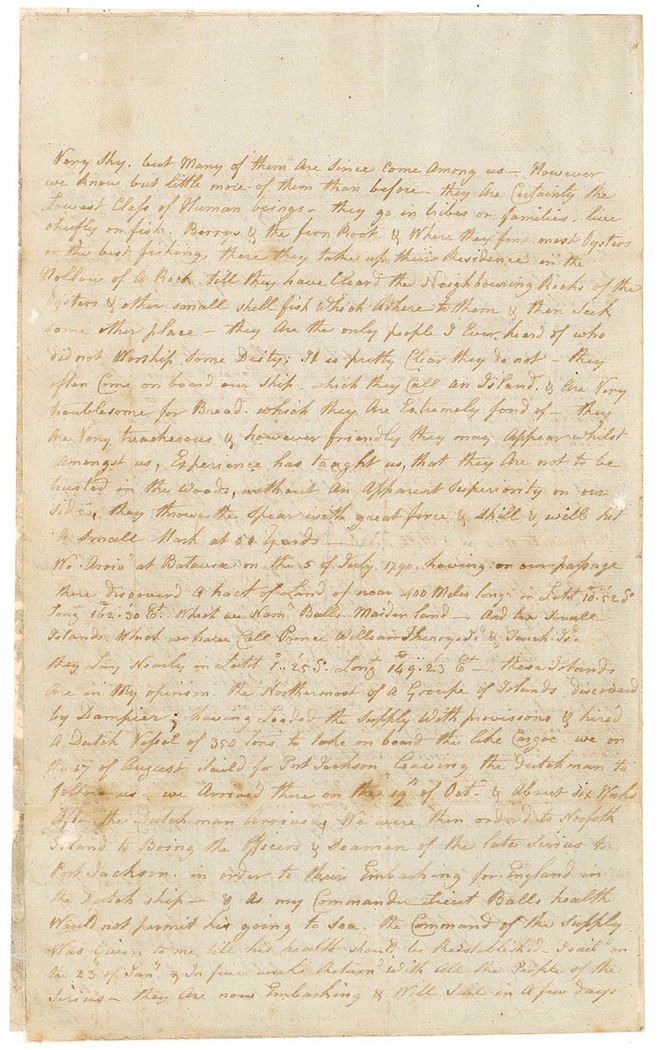 Very Shy. but Many of them Are Since Come Among us – However
we know but little more of them than before – they Are Certainly the
Lowest Class of Human beings – they go in tribes or families – live
chiefly on fish. Berrys & the fern Root & Where they find most Oysters
or the best fishing, there they take up their Residence in the
Hollow of A Rock till they have Cleard the Neighbouring Rocks of the
Oysters & other small shell fish which Adhere to them & then Seek
some other place – they Are the only people I Ever heard of who
did not Worship some Deity; It is pretty Clear they do not – they
often Come on board our Ship – which they Call An Island. & Are Very
troublesome for Bread. which they Are Extremely fond of – they
Are Very treacherous & however friendly they may Appear whilst
Amongst us, Experience has taught us, that they Are not to be
trusted in the woods, without An Apparent Superiority on our
Side, they throw the Spear with great force & skill & will hit
A Small Mark at 50 Yards –
We Arriv'd at Batavia on the 5 of July 1790. having on our passage
there discoverd A tract of Land of near 400 Miles long in Lattd 10.'52 So
Long 162.'30 Et. Which we Nam'd Balls Maiden land – And two Small
Islands. Which we have Call Prince William Henry Is. & Tench Is.
they Lay Nearly in Lattd 1..'25 S. Long 149..23 Et – these Islands
Are in My opinion the Northermost of A Groupe of Islands discoverd
by Dampier; having Loaded the Supply With provisions & hired
A Dutch Vessel of 350 tons to take on board the like Cargoe we on
the 17 of August Saild for Port Jackson leaving the Dutchman to
follow us – we Arrived there on the 19th of Octr & About six Weeks
After the Dutchman Arrived, We were then orderd to Norfolk
Island to Bring the Officers & Seamen of the late Sirius to
Port Jackson. in order to their Embarking for England in
the Dutch ship – & As my Commander Lieut Balls health
Would not permit his going to Sea. the Command of the Supply
Was Given to me till his health should be Reestablished. I sail'd on
the 23 of Jany & In few weeks Return'd with All the People of the
Sirius – they Are now Embarking & Will Sail in A few days